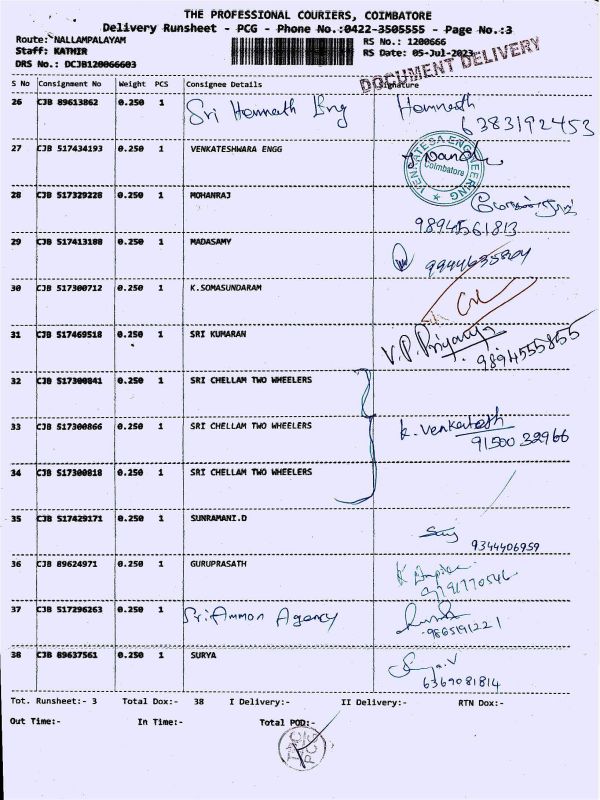 THE PROFESSIONAL COURIERS, COIMBATORE
Delivery Runsheet - PCG - Phone No.:0422-3505555 - Page No.:3
Route: NALLAMPALAYAM RS No.: 1200666
Staff: KATHIR RS Date: 05-Jul-2023
DRS No.: DCJB120066603
DOCUMENT DELIVERY
S No Consignment No Weight PCS Consignee Details Signature
26 CJB 89613862 0.250 1 Sri Hemnath Eng Hemnath
6383192453
27 CJB 517434193 0.250 1 VENKATESHWARA ENGG
VENKATESA ENGINEERING Coimbatore
28 CJB 517329228 0.250 1 MOHANRAJ
9894561813
29 CJB 517413188 0.250 1 MADASAMY
30 CJB 517300712 0.250 1 K.SOMASUNDARAM
31 CJB 517469518 0.250 1 SRI KUMARAN V.P. Priyanga
9894555855
32 CJB 517300841 0.250 1 SRI CHELLAM TWO WHEELERS
33 CJB 517300866 0.250 1 SRI CHELLAM TWO WHEELERS k. Venkatesh
9150032966
34 CJB 517300818 0.250 1 SRI CHELLAM TWO WHEELERS
35 CJB 517429171 0.250 1 SUNRAMANI.D
9344406959
36 CJB 89624971 0.250 1 GURUPRASATH
9791770546
37 CJB 517296263 0.250 1 Sri Ammon Agency
9865191221
38 CJB 89637561 0.250 1 SURYA
6369081814
Tot. Runsheet:- 3 Total Dox:- 38 I Delivery:- II Delivery:- RTN Dox:-
Out Time:- In Time:- Total POD:-